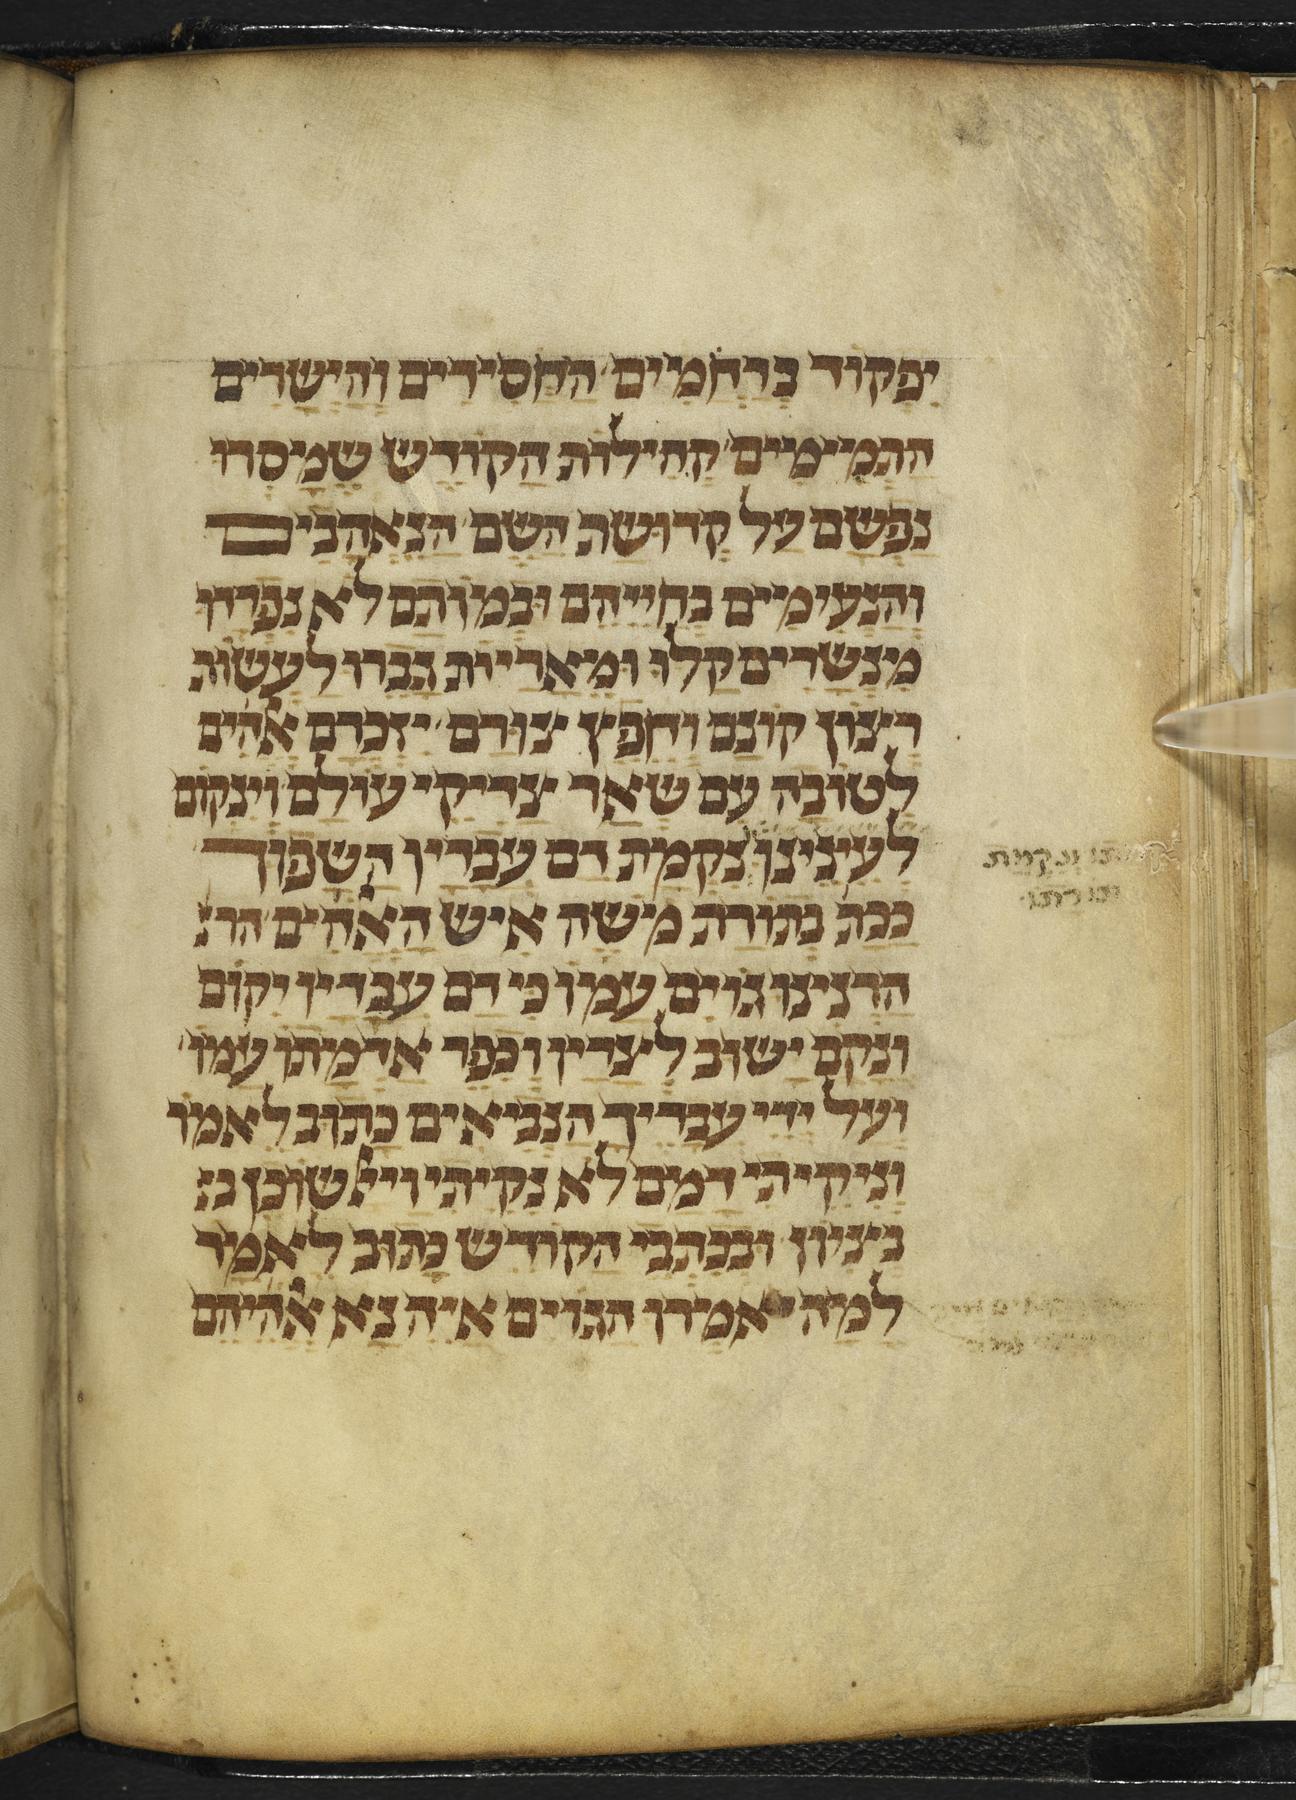 יפקוד ברחמים החסידים והישרים
התמימים קהילות הקודש שמיסרו
נפשם על קדושת השם הנאהבים
והנעימים בחייהם ובמותם לא נפרדו
מינשרים קלו ומיאריות גברו לעשות
ריצון קונם וחפץ צורם יזכרם אלהים
לטובה עם שאר צדיקי עולם וינקום
לעינינו נקמת דם עבדיו השפוך
ככת׳ בתורת מישה איש האלהים הרנ
הרנינו גוים עמו כי דם עבדיו יקום
ונקם ישוב ליצריו וכפר אדמתו עמו
ועל ידי עבדיך הנביאים כתוב לאמר
וניקיתי דמם לא נקיתי וייי שוכן בצ
ביציון ובכתבי הקודש כתוב לאמר
למה יאמרו הגוים איה נא אלהיהם
ונקמת